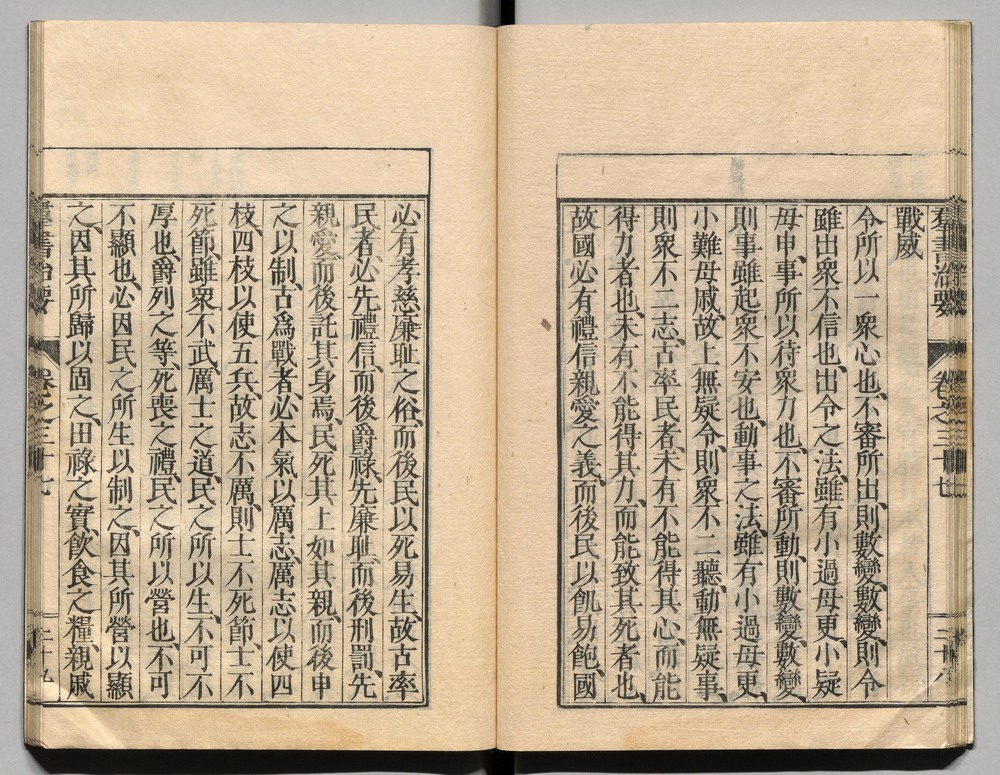 羣書治要 卷之三十七 二十八
戰威
令所以一衆心也、不審所出、則數變、數變、則令
雖出衆不信也、出令之法、雖有小過毋更、小疑
毋申、事所以待衆力也、不審所動、則數變、數變
則事雖起衆不安也、動事之法、雖有小過毋更、
小難毋戚、故上無疑令、則衆不二聽、動無疑事、
則衆不二志、古率民者、未有不能得其心、而能
得力者也、未有不能得其力、而能致其死者也、
故國必有禮信親愛之義、而後民以飢易飽、國
必有孝慈廉耻之俗、而後民以死易生、故古率
民者、必先禮信、而後爵祿、先廉耻、而後刑罰、先
親愛、而後託其身焉、民死其上如其親、而後申
之以制、古爲戰者、必本氣以厲志、厲志以使四
枝、四枝以使五兵、故志不厲、則士不死節、士不
死節、雖衆不武、厲士之道、民之所以生、不可不
厚也、爵列之等、死喪之禮、民之所以營也、不可
不顯也、必因民之所生以制之、因其所營以顯
之、因其所歸以固之、田祿之實、飲食之糧、親戚
羣書治要 卷之三十七 二十九